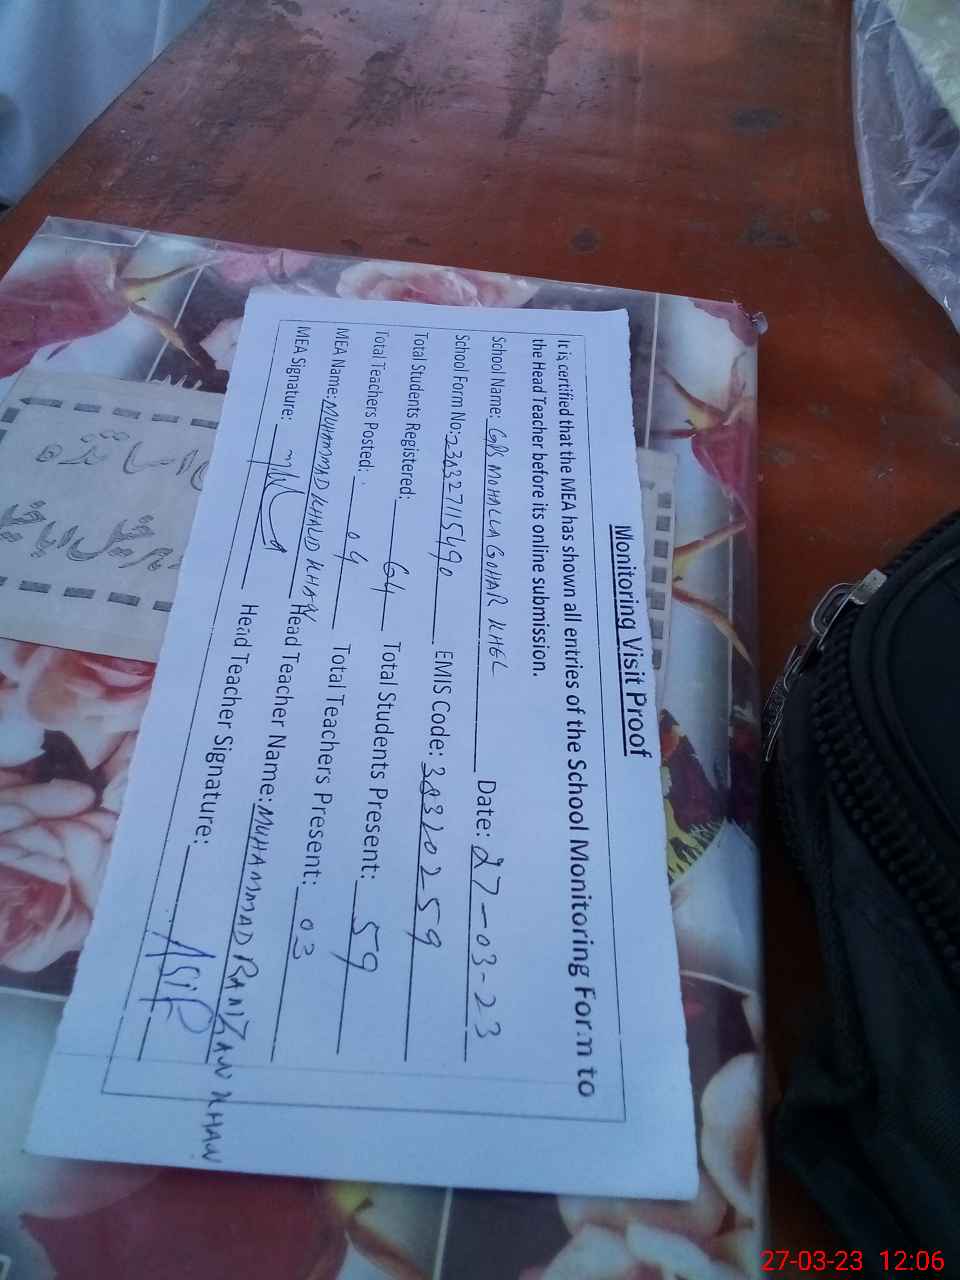 Monitoring Visit Proof
It is certified that the MEA has shown all entries of the School Monitoring Form to
the Head Teacher before its online submission.
School Name: GPS MOHALLA GOHAR KHEL Date: 27-03-23
School Form No: 23A327115490 EMIS Code: 3A320259
Total Students Registered: 64 Total Students Present: 59
Total Teachers Posted: 04 Total Teachers Present: 03
MEA Name: MUHAMMAD KHALID KHAN Head Teacher Name: MUHAMMAD RAMZAN KHAN
MEA Signature: Head Teacher Signature: ASIF
27-03-23 12:06